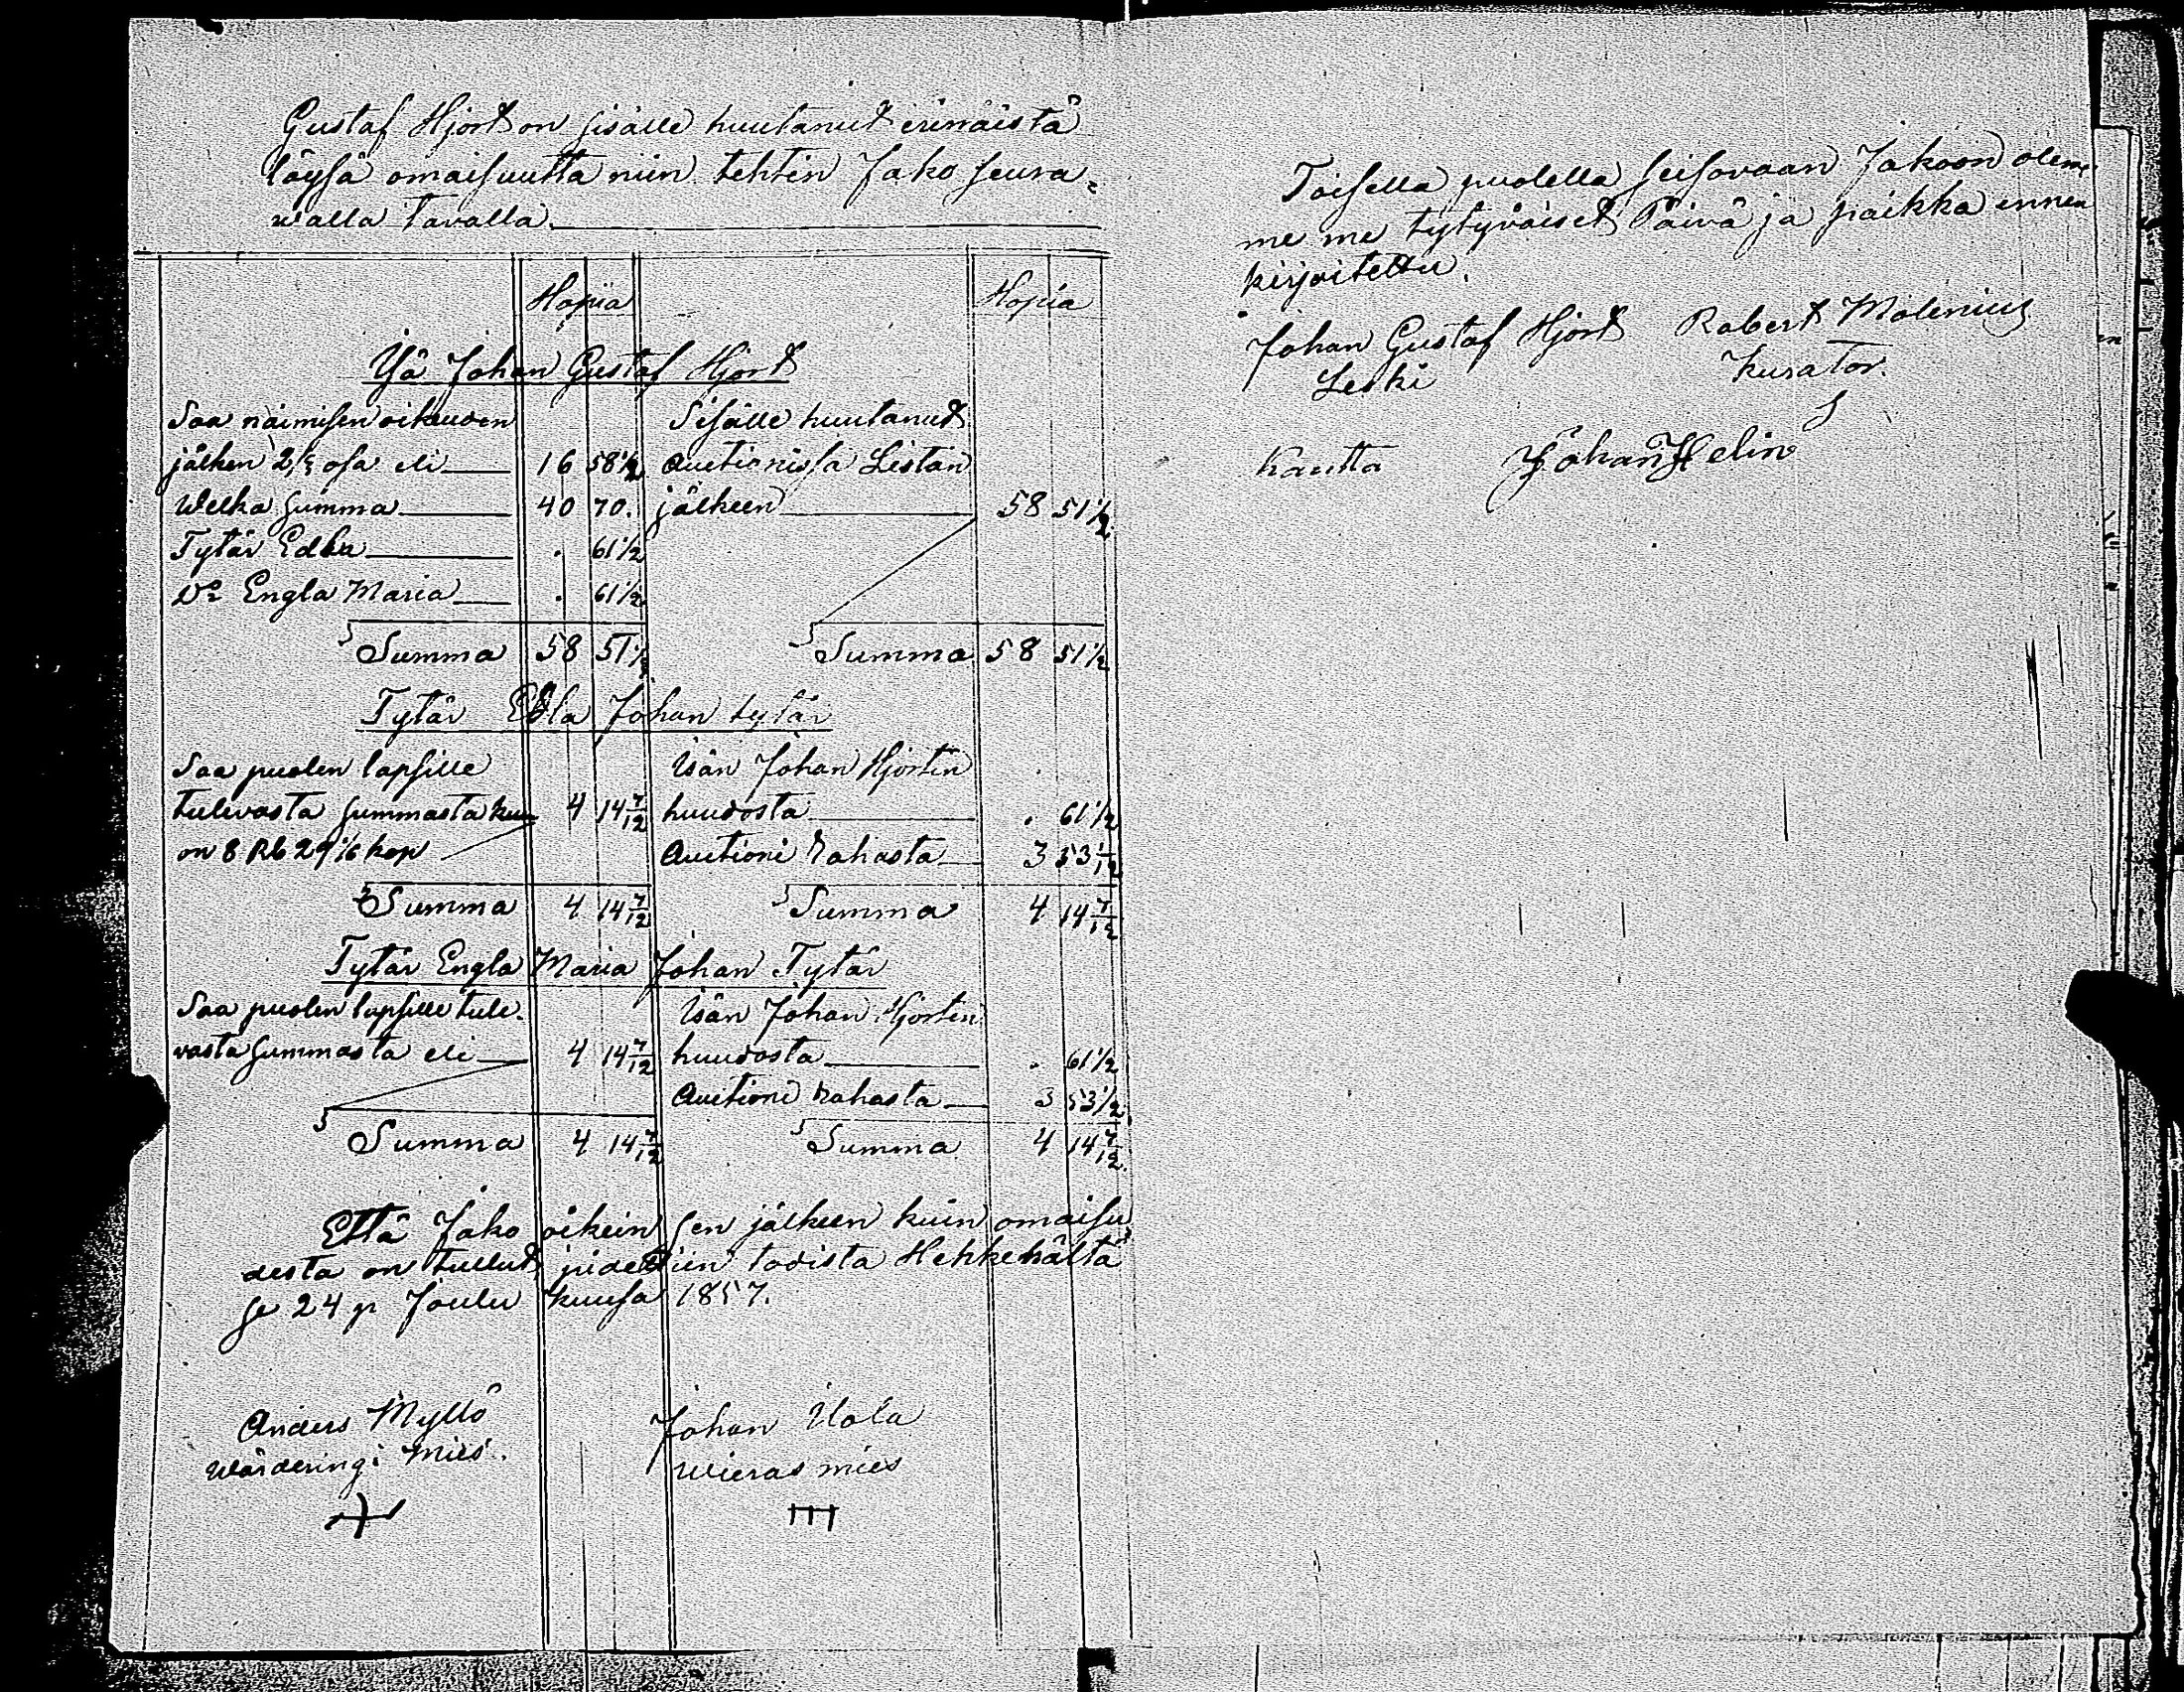 Gustaf Hjort on sisälle huutanut erinäistä
löysä omaisuutta niin tehtin Jako seura=
walla tavalla.
Hopia Hopia
Isä Johan Gustaf Hjort
Saa naimisen oikeuden
jälken 2/3 osa eli 16 58 1/2
Welka Summa 40 70.
Tytär Edla . 61 1/2
Do Engla Maria . 61 1/2
Summa 58 51 1/2
Sisälle huutanut
auctionissa Listan
jälkeen 58 51 1/2
Summa 58 51 1/2
Tytär Edla Johan tytär
Saa puolen lapsille
tulevasta summasta kun 4 14 7/12
on 8 Rb 29 1/6 kop
Summa 4 14 7/12
Isän Johan Hjortin
huudosta . 61 1/2
Auctioni rahasta 3 53 1/12
Summa 4 14 7/12
Tytär Engla Maria Johan Tytär
Saa puolen lapsille tule.
vasta summasta eli 4 14 7/12
Summa 4 14 7/12
Isän Johan Hjortin
huudosta . 61 1/2
Auctioni rahasta 3 53 1/2
Summa 4 14 7/12
Että Jako oikein sen jälkeen kuin omaisu
desta on tullut, pidettiin todista
se 24 p Joulu kuusa 1857.
Anders Myllö
Wärderingi Mies.
Johan Uola
Wieras mies
Toisella puolella seisovaan Jakoon olem=
me me tytyväiset Päivä ja paikka ennen
kirjoitettu.
Johan Gustaf Hjort
Leski
Robert Molenius
Kurator.
Kautta Johan Helin